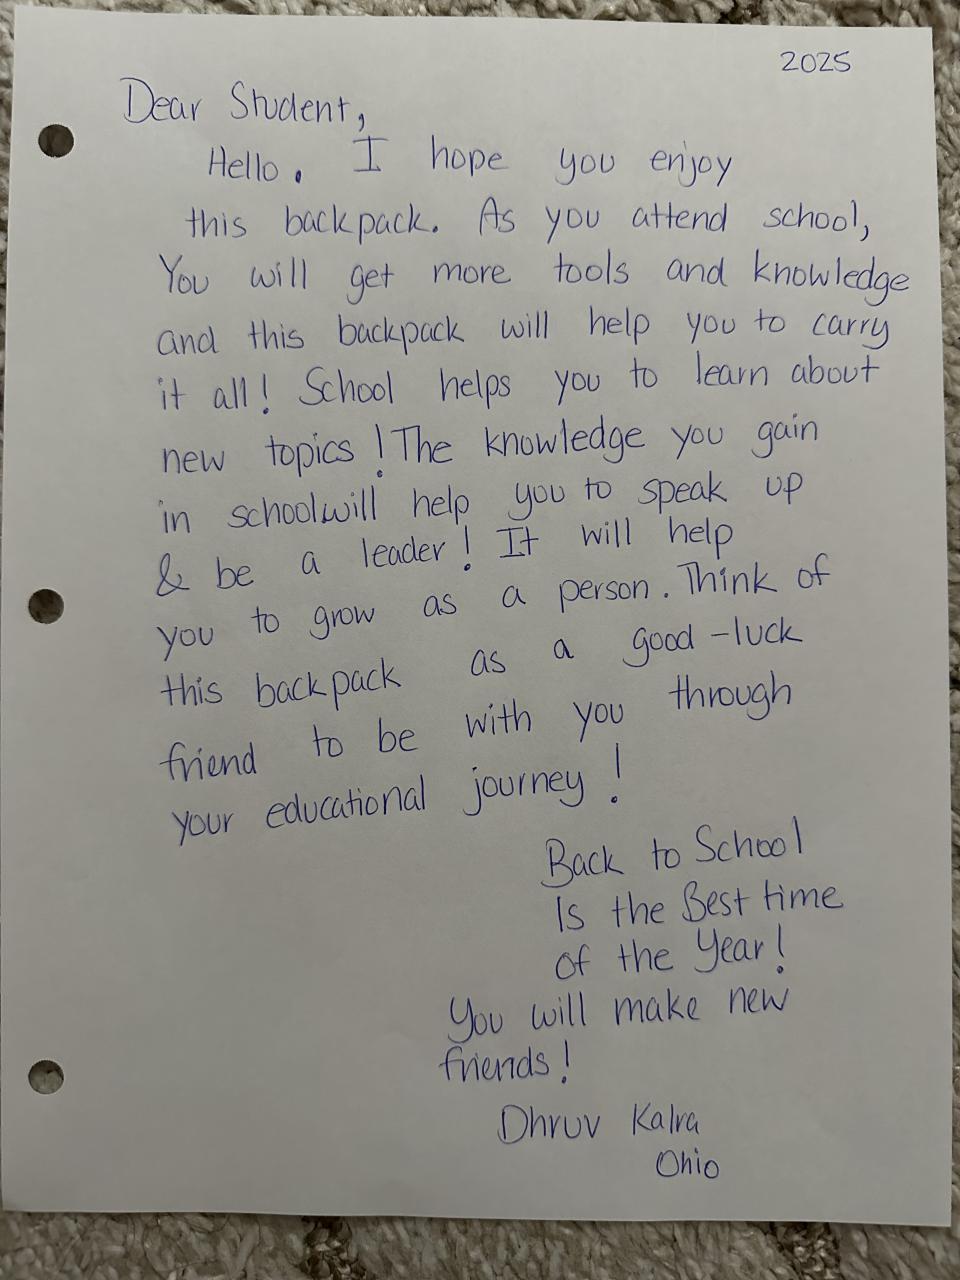 2025
Dear Student,
Hello. I hope you enjoy
this backpack. As you attend school,
You will get more tools and knowledge
and this backpack will help you to carry
it all! School helps you to learn about
new topics! The knowledge you gain
in school will help you to speak up
& be a leader! It will help
you to grow as a person. Think of
this backpack as a good-luck
friend to be with you through
your educational journey!
Back to School
Is the Best time
of the Year!
You will make new
friends!
Dhruv Kalra
Ohio